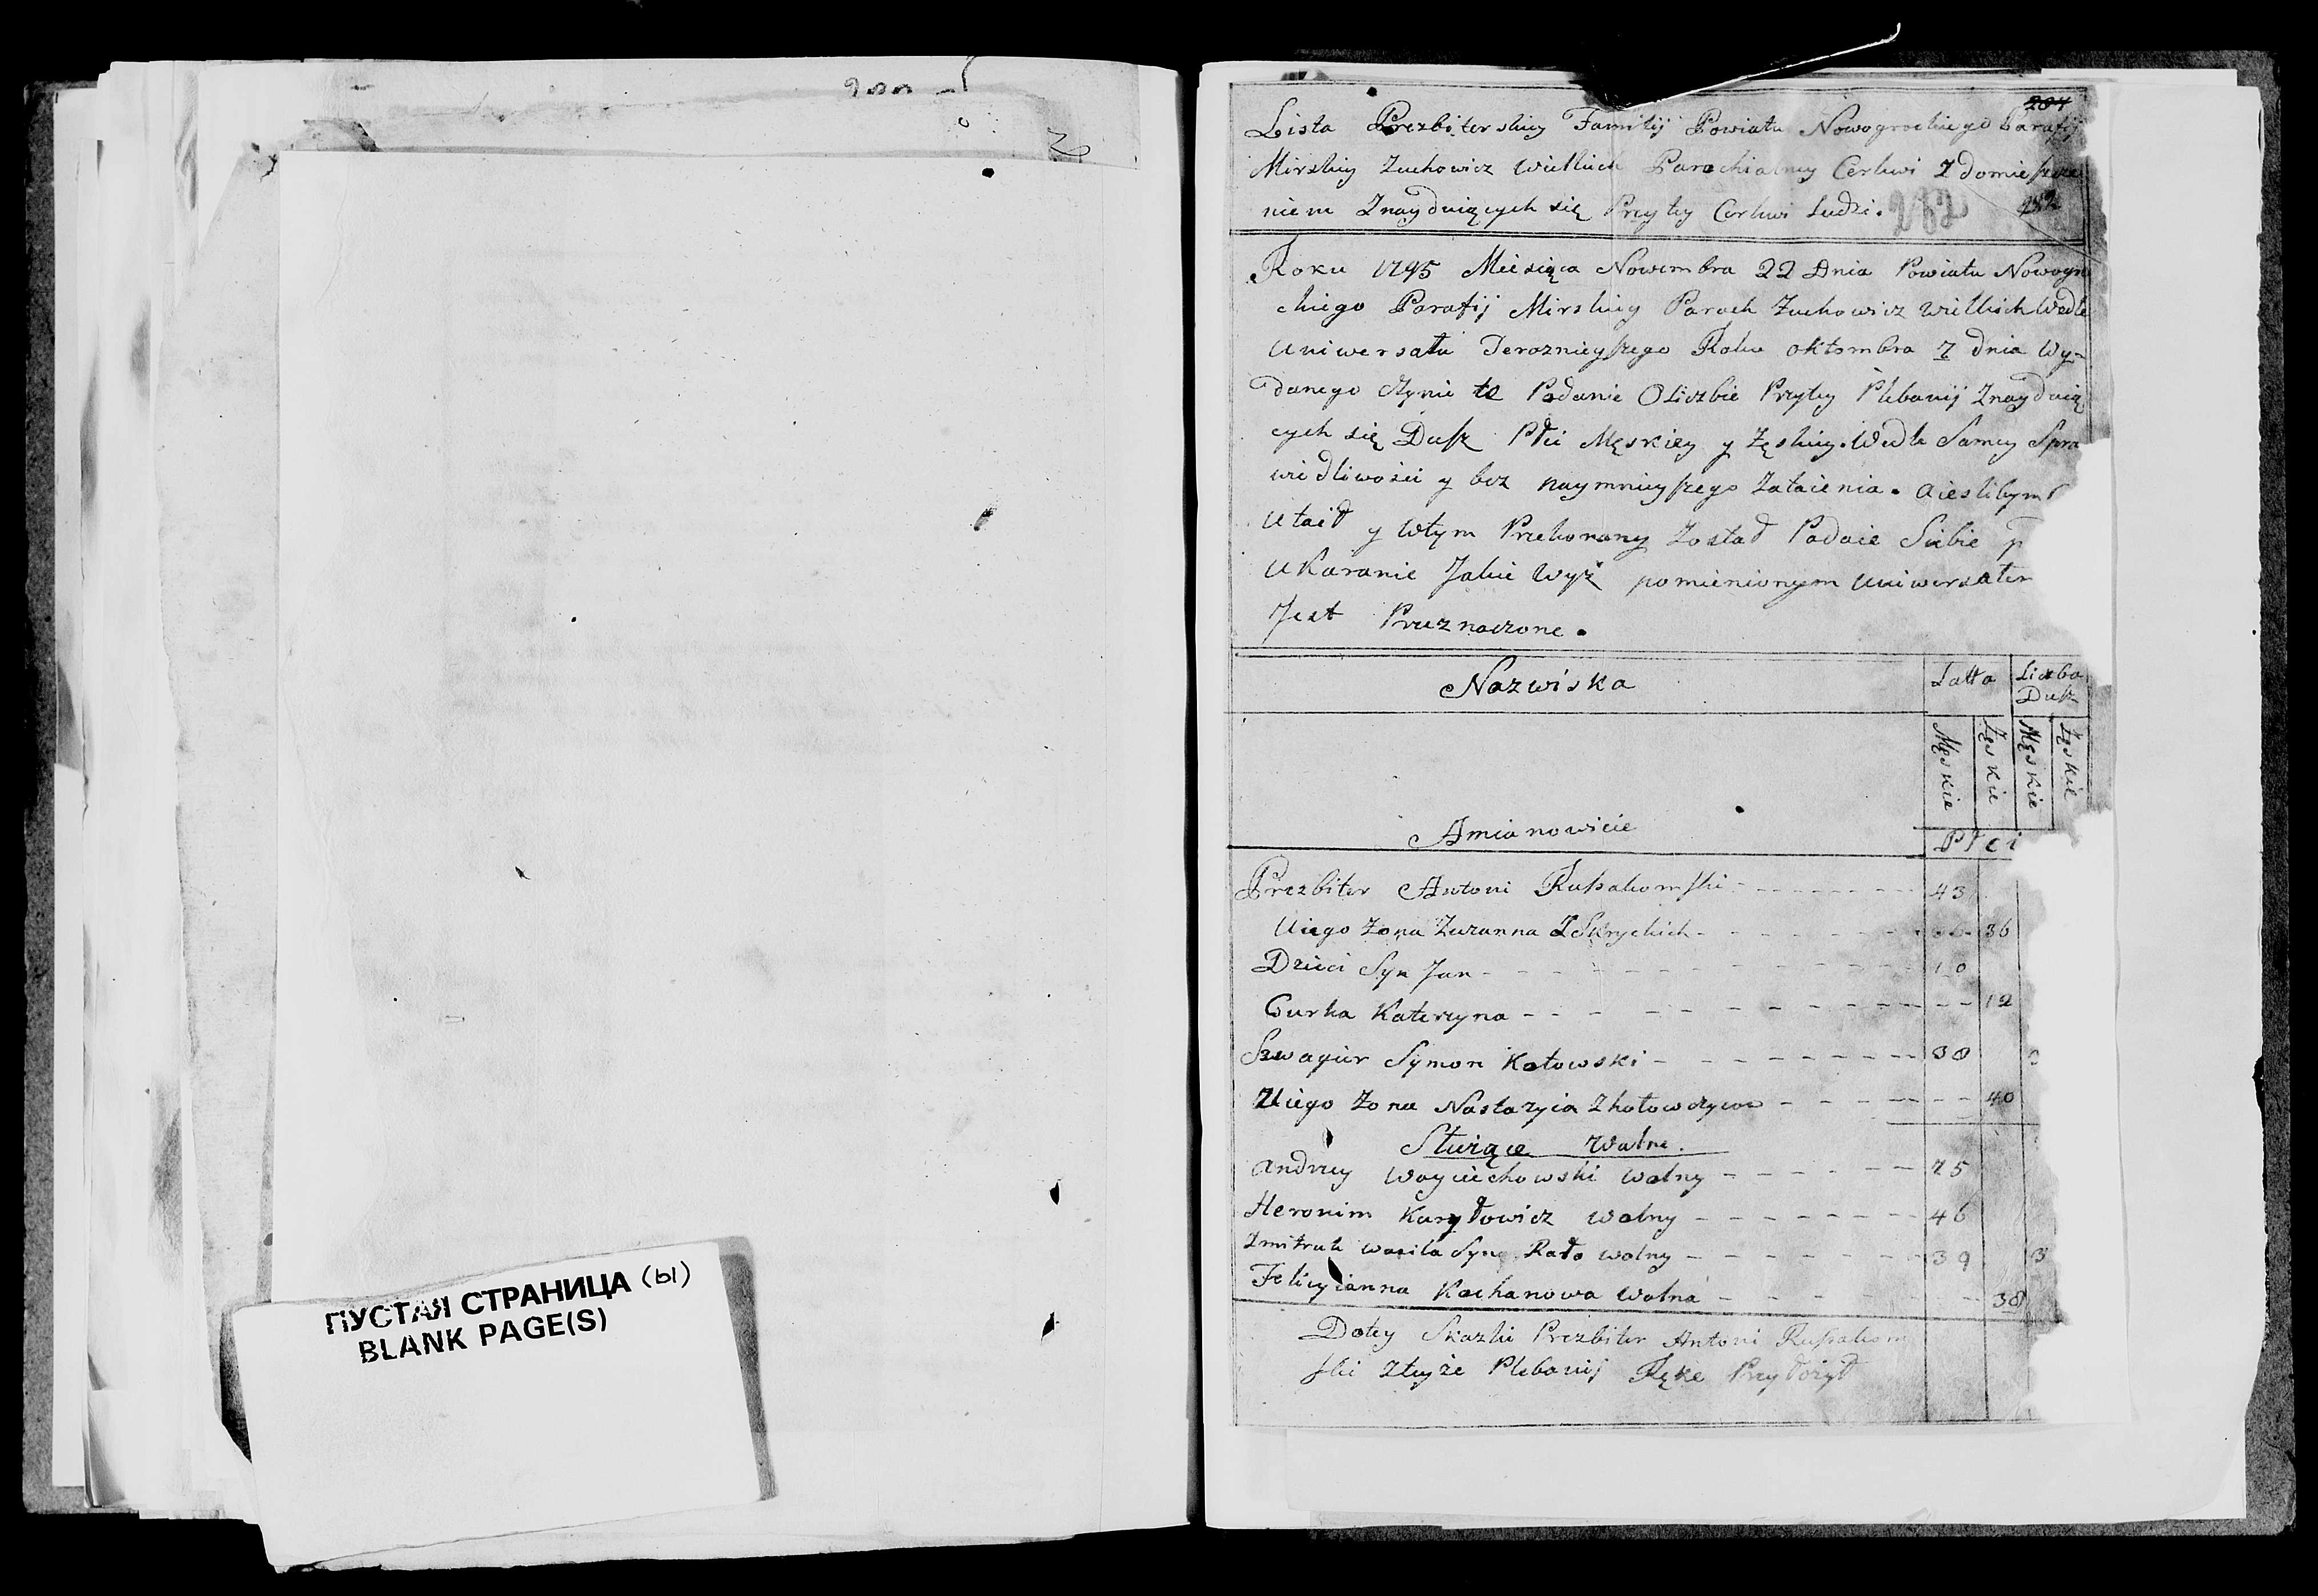 ПУСТАЯ СТРАНИЦА (ы)
BLANK PAGE(S)
204
Lista Prezbiterskiey Familij Powiatu Nowogrockiego Parafij
Mirskiey Żuchowicz Wielkich Parochialney Cerkwi Z domiesze
niem Znayduiących się Przy tey Cerkwi Ludzi.
282
Roku 1795 Miesiąca Nowembra 22 Dnia Powiatu Nowogro
ckiego Parafij Mirskiey Paroch Żuchowicz Wielkich Wedle
Uniwersału Teraznieyszego Roku Oktombra 7 dnia Wy-
danego Czynie te Podanie O Liczbie Przytey Plebanij Znayduią
cych się Dusz Płci Męskiey y Żęskiey. Wedle Samey Spra
wiedliwości y bez naymnieyszego Zataienia. A ieslibym
Utaił y Wtym Przekonany Został Podaie Siebie p
Ukaranie Jakie Wyż pomienionym Uniwersałem
Jest Przeznaczone.
Nazwiska
Latta
Liczba Dusz
Męskie
Żęskie
Męskie
Żęskie
Amianowicie
Płci
Prezbiter Antoni Ruszakomski 43
Uiego Żona Zuzanna Z 36
Dzieci Syn Jan 10
Curka Katerzyna 12
Szwagier Symon Kotowski 30
Uiego Żona Nastazyia 40
Służące Wolne.
Andrzey Woyciechowski wolny 25
Heronim Karyłowicz wolny 46
Zmitruk Wasila Syn Rało wolny 39 3
Felicyianna Kochanowa Wolna 38
Dotey Skazki Prezbiter Antoni Ruszakom
ski Zteyże Plebanij Rękę Przyłożył